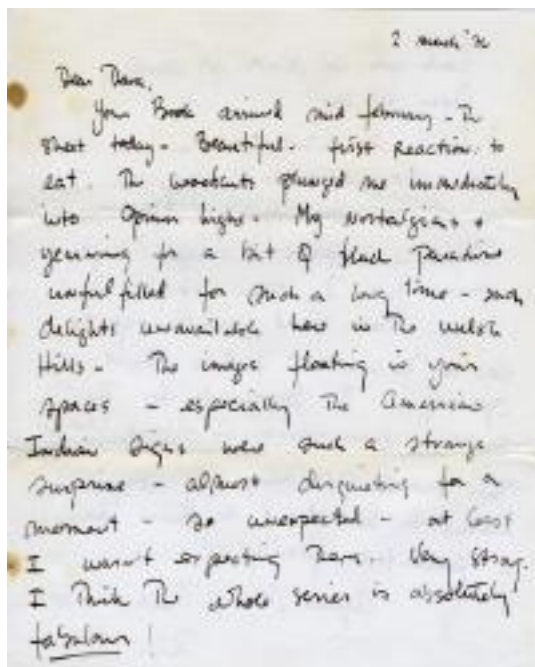 2 March '76
Dear Thava,
Your Book arrived mid february - The
sheet today - Beautiful. first Reaction. to
eat. The woodcuts plunged me immediately
into opium highs. My nostalgias &
yearning for a bit of black Paradise
unfulfilled for such a long time - such
delights unavailable here in The welsh
Hills - The images floating in your
spaces - especially The American
Indian signs were such a strange
surprise - almost disquieting for a
moment - so unexpected - at least
I wasn't expecting Them. Very strong.
I Think The whole series is absolutely
fabulous!